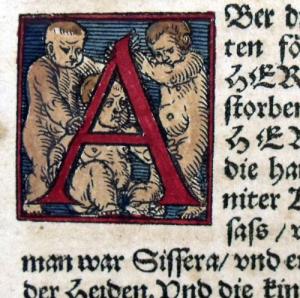 ABer di
ten fö
HER
storben
HER
die hau
niter
sass / v
man war Sissera / vnd er
der Heiden. Vnd die kin